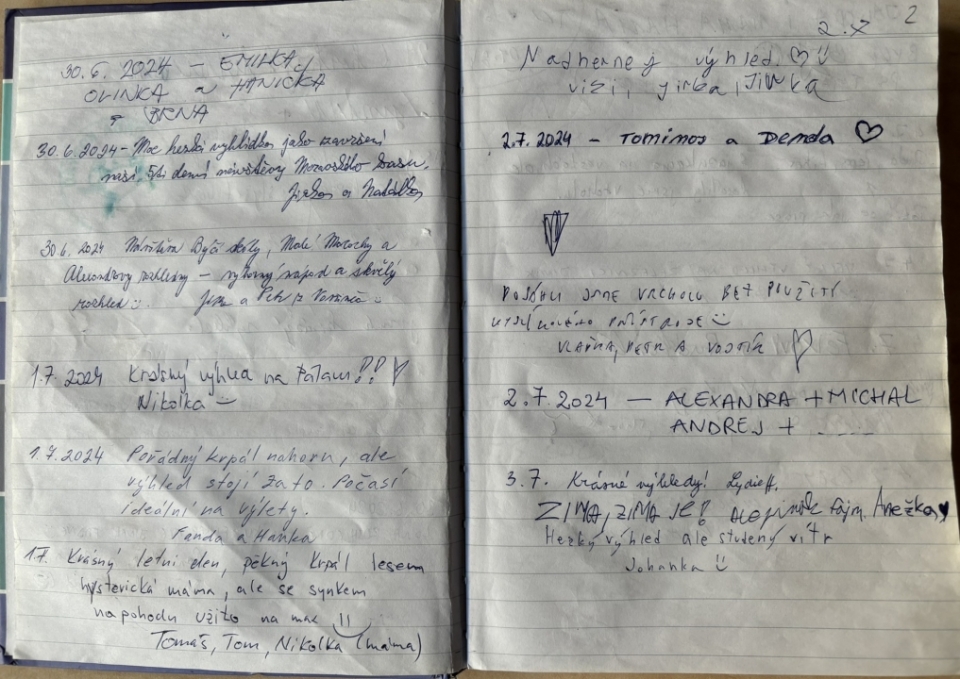 30.6. 2024 – EMILKA,
OLINKA a HANIČKA
z BRNA
30.6.2024 – Moc hezká vyhlídka jako završení
naší 5ti denní návštěvy Moravského krasu.
Jirka a
30.6. 2024 Návštěva Býčí skály, Malé Macochy a
Alexandrovy rozhledny – výborný nápad a skvělý
rozhled :)
a Petr z
1.7. 2024 Krásný výhled na Pálavu!?
Nikolka
1.7.2024 Pořádný krpál nahoru, ale
výhled stojí za to. Počasí
ideální na výlety.
Fanda a Hanka
1.7. Krásný letní den, pěkný krpál lesem
hysterická máma, ale se synkem
na pohodu užito na max !!
Tomáš, Tom, Nikolka (máma)
2
2.7
Nadhernej výhled. ♡
Jirka,
2.7.2024 – Tominos a Demda ♡
JSME VRCHOLU BEZ POUŽITÍ
KYSLÍKOVÉHO PŘÍSTROJE
VLAĎKA, PETR A VOJTÍK
2.7.2024 — ALEXANDRA + MICHAL
ANDREJ + .....
3.7. Krásné výhledy! Lydie
ZIMA, ZIMA JE! ALE jinak fajn. Anežka ♥
Hezký výhled ale studený vítr
Johanka